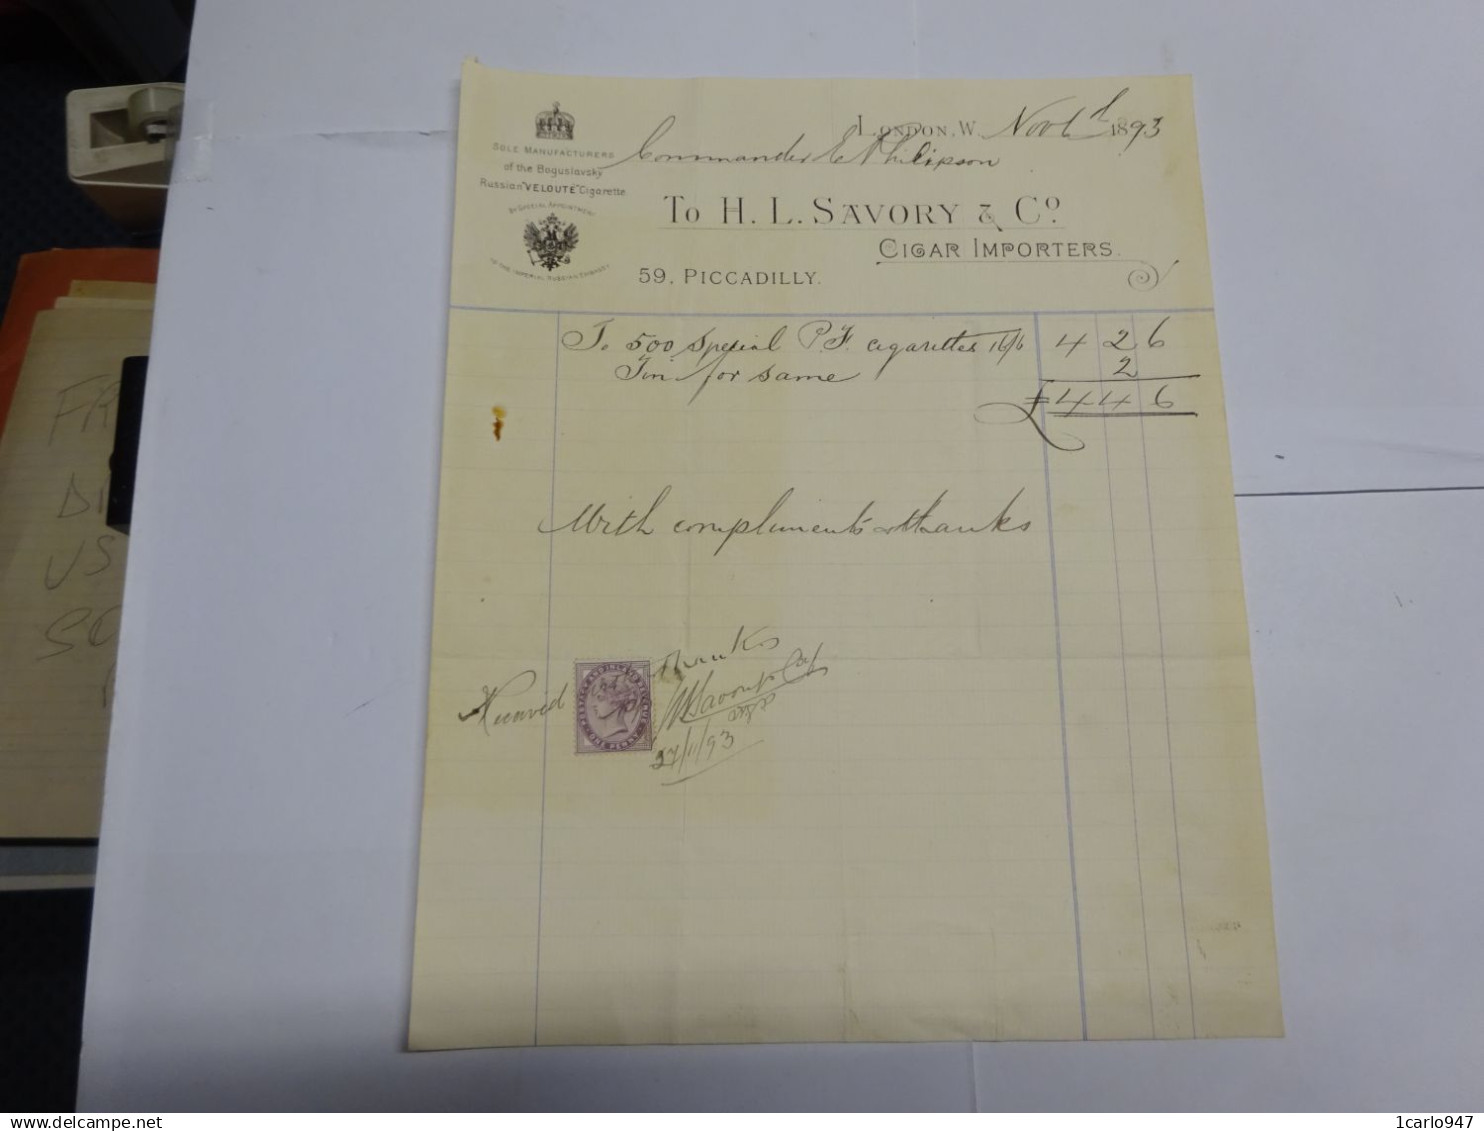 SOLE MANUFACTURERS
of the Boguslavsky
Russian "VELOUTÉ" Cigarette
BY SPECIAL APPOINTMENT
TO THE IMPERIAL RUSSIAN EMBASSY
LONDON, W. Nov 1893
Commander E Philipson
To H. L. SAVORY & Co.
CIGAR IMPORTERS.
59, PICCADILLY.
To 500 Special P.F. cigarettes 16/6 4 2 6
Tin for same 2
£ 4 4 6
With compliments & thanks
Received thanks
POSTAGE AND INLAND REVENUE
ONE PENNY
HLSavory & Co
27/11/93
FR
DI
US
SO
delcampe.net
1carlo947